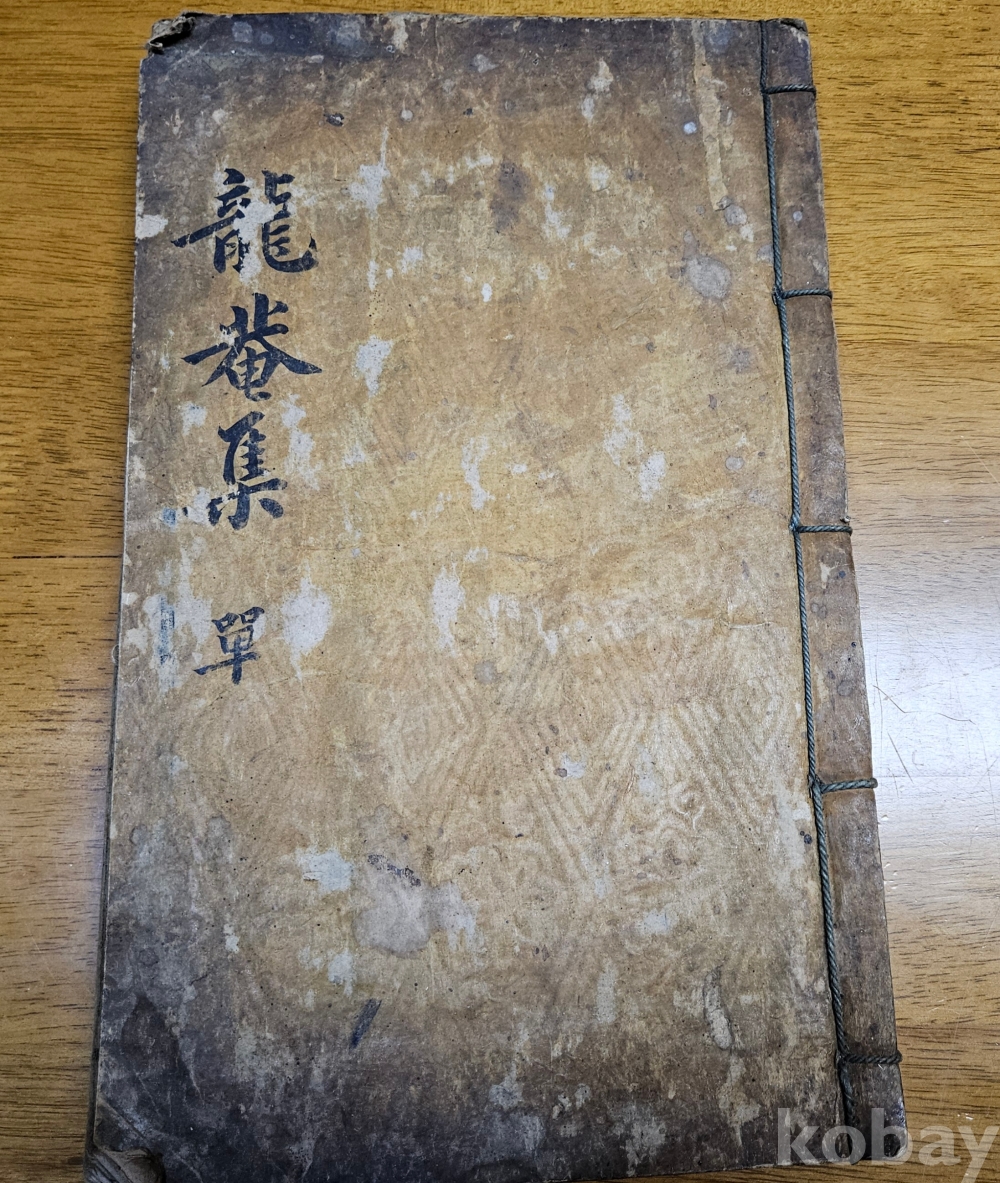 龍菴集 單
kobay